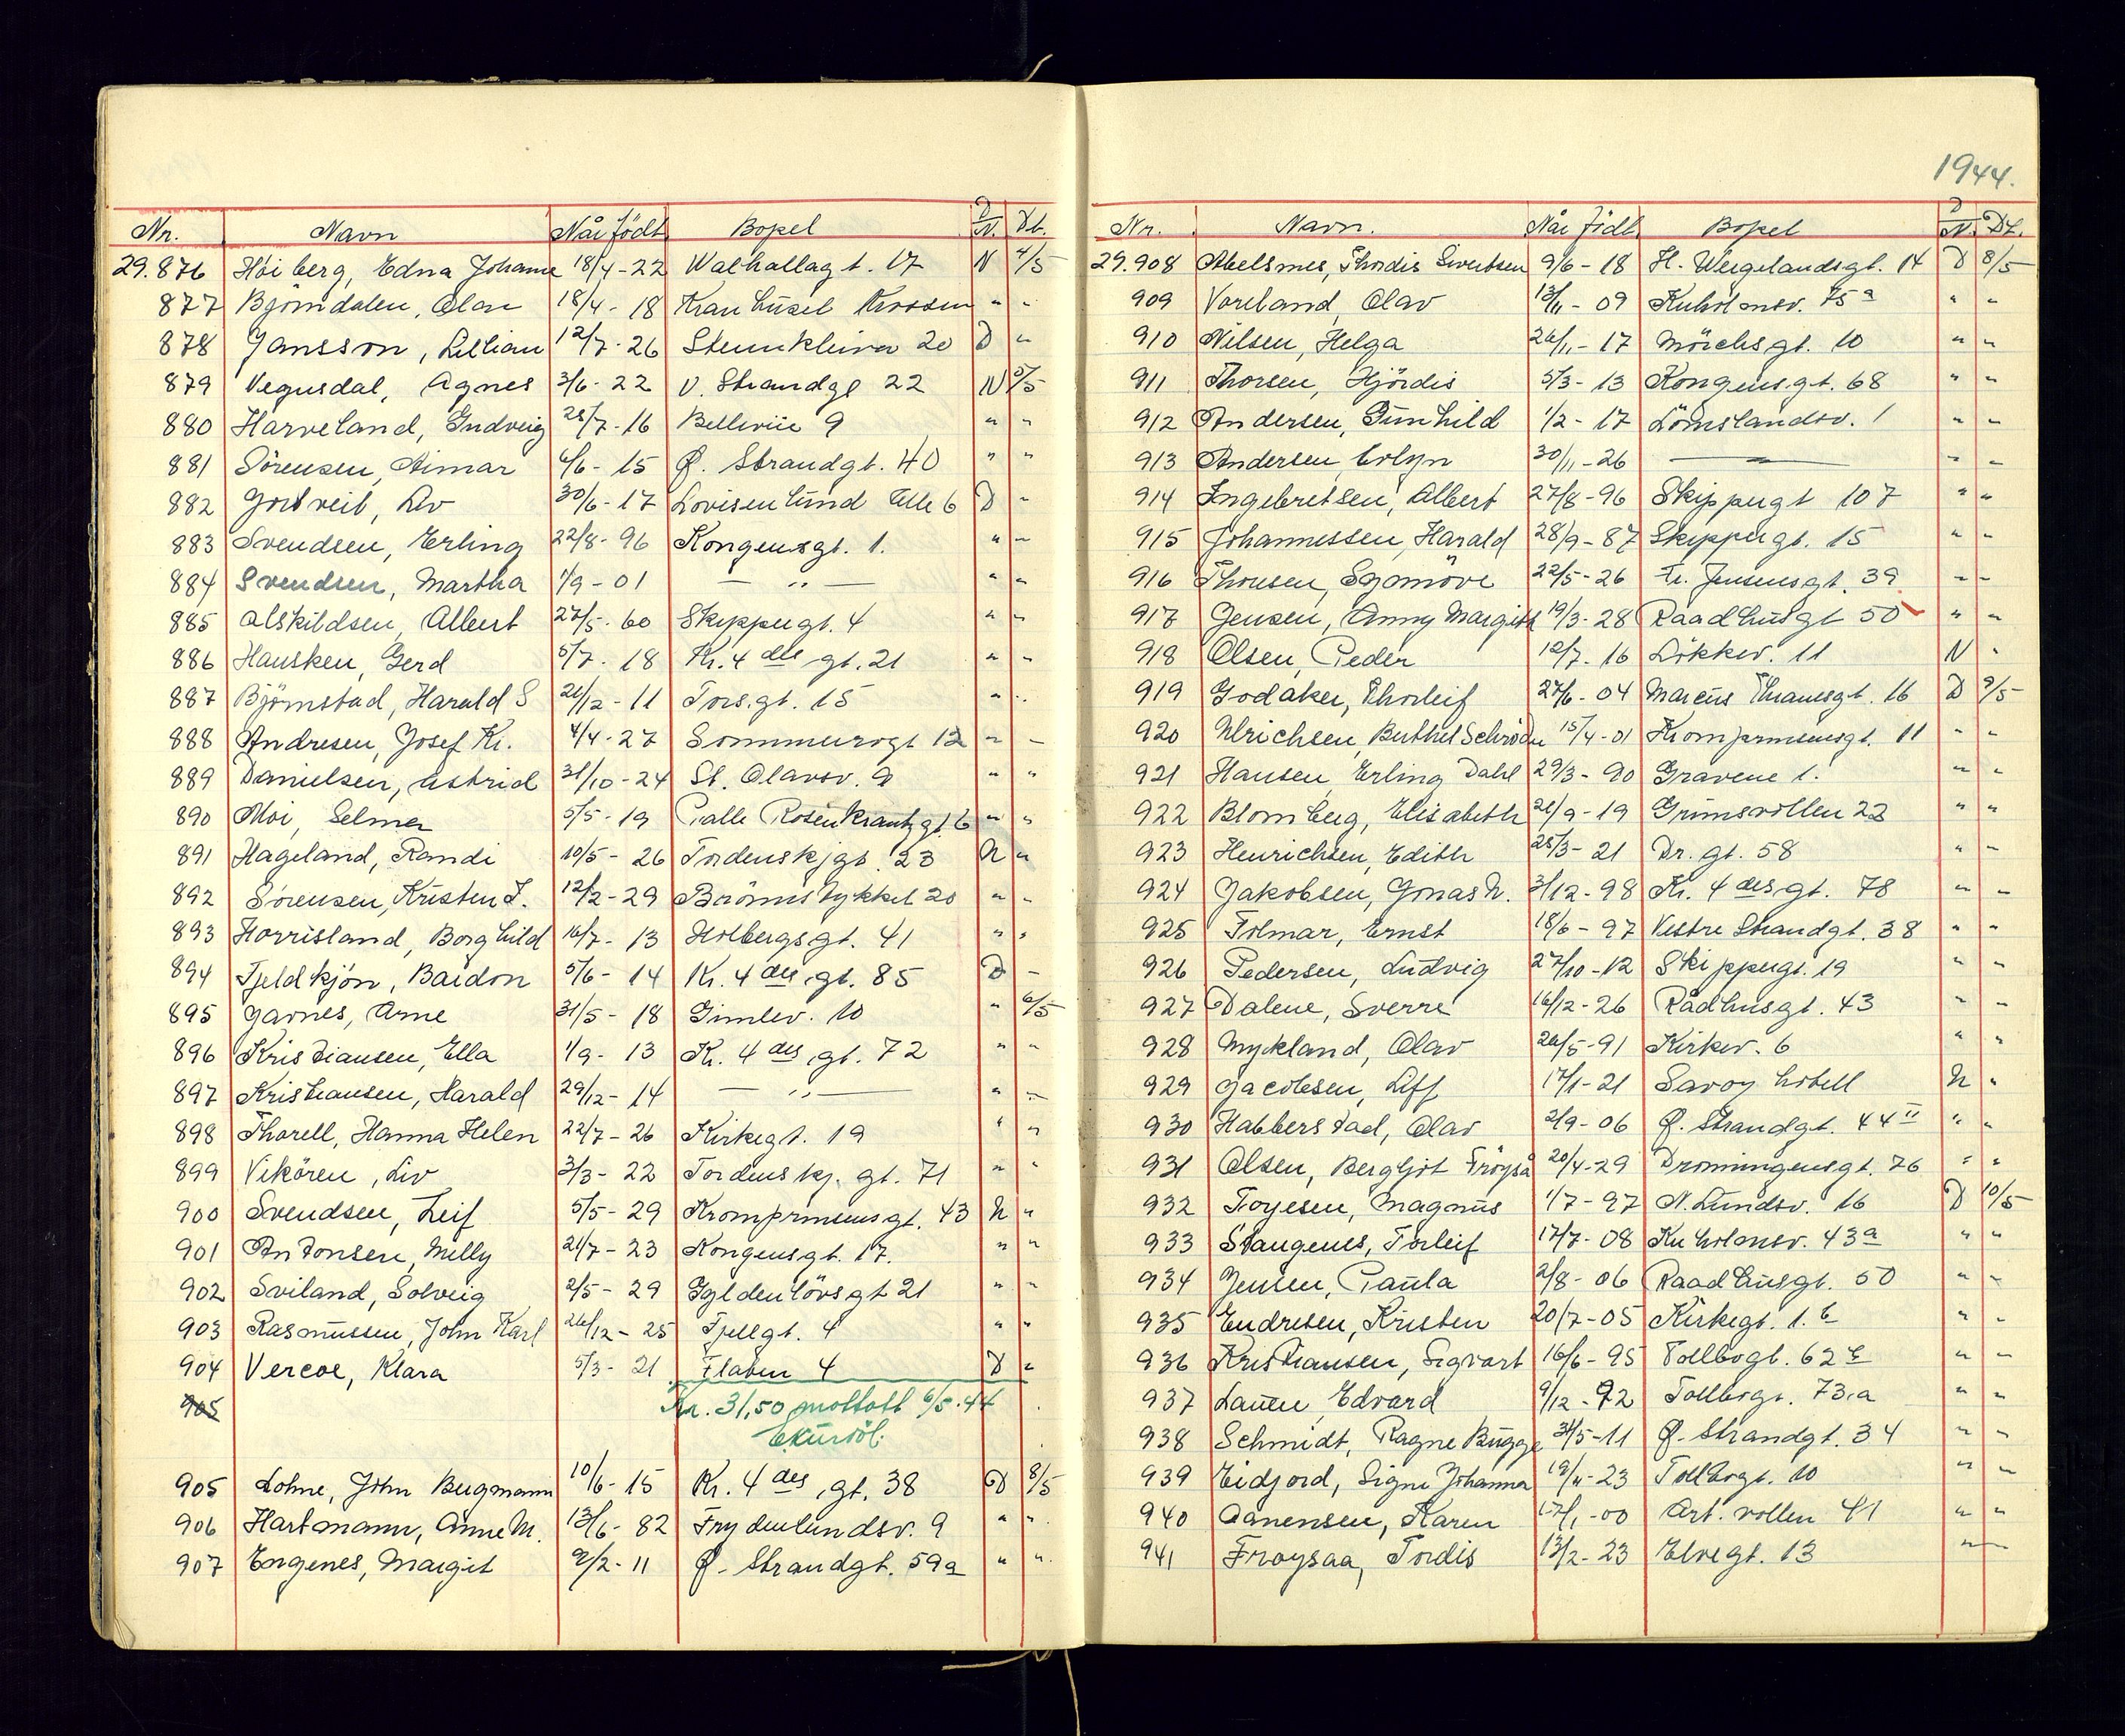 1944.
Nr. Navn Når födt Bopel D/N. Dt.
29.876 Höiberg, Edna Johanne 18/4-22 Walhallagt. 17 N 4/5
877 Björndalen, Olav 18/4-18 Krossen " "
878 Jansson, Lillian 12/7-26 Steinkleiva 20 D "
879 Vegusdal, Agnes 3/6-22 V. Strandgt 22 N 5/5
880 Harveland, Gudveig 28/7-16 Bellevue 9 " "
881 Sörensen, Aimar 4/6-15 Ø. Strandgt. 40 " "
882 Jortveit, Liv 30/6-17 Lovisenlund Elle 6 D "
883 Svendsen, Erling 22/8-96 Kongensgt. 1. " "
884 Svendsen, Martha 1/9-01 — " — " "
885 Alskildsen, Albert 27/5-60 Skippergt. 4 " "
886 Hausken, Gerd 5/7-18 Kr. 4 des gt. 21 " "
887 Björnstad, Harald S 21/12-11 Torsgt. 15 " "
888 Andresen, Josef Kr. 4/4-27 Sommerrogt 12 " "
889 Danielsen, Astrid 31/10-24 St. Olavsv. 9 " "
890 Moi, Selmer 5/5-19 Palle Rosenkrantzgt. 6 " "
891 Hageland, Randi 10/5-26 Tordenskjgt. 23 N "
892 Sörensen, Kristen S. 12/2-29 Brömstykket 20 " "
893 Horrisland, Borghild 16/7-13 Holbergsgt. 41 " "
894 Tjeldkjön, Baidon 5/6-14 Kr. 4 des gt. 85 D "
895 Garnes, Arne 31/5-18 Gimlev. 10 " 6/5
896 Kristiansen, Ella 1/9-13 Kr. 4 des gt. 72 " "
897 Kristiansen, Harald 29/12-14 — " — " "
898 Thorell, Hanna Helen 22/7-26 Kirkegt. 19 " "
899 Vikören, Liv 3/3-22 Tordenskj. gt. 71 " "
900 Svendsen, Leif 5/5-29 Kromprinsensgt. 43 N "
901 Antonsen, Milly 21/7-23 Kongensgt. 17. " "
902 Sviland, Solveig 2/5-29 Gyldenlövsgt 21 " "
903 Rasmussen, John Karl 26/12-25 Fjellgt. 4 " "
904 Vercoe, Klara 5/3-21 Flaten 4 D "
905 Kr. 31,50 mottatt 6/5.44
905 Lohne, John Bergmann 10/6-15 Kr. 4 des gt. 38 D 8/5
906 Hartmann, Anne M. 13/6-82 Frydenlundsv. 9 " "
907 Engenes, Margit 9/2-11 Ø. Strandgt. 59a " "
Nr. Navn. Når födt Bopel D/N. Dt.
29.908 Abelsnes, Thordis Sivertsen 9/6-18 H. Wergelandsgt. 14 D 8/5
909 Voreland, Olav 13/11-09 Kuholmsv. 75a " "
910 Nilsen, Helga 26/11-17 Mörchsgt. 10 " "
911 Thorsen, Hjördis 5/3-13 Kongensgt. 68 " "
912 Andersen, Gunhild 1/2-17 Lömslandsv. 1 " "
913 Andersen, Evlyn 30/11-26 — " "
914 Ingebretsen, Albert 27/8-96 Skippergt 107 " "
915 Johannessen, Harald 28/9-87 Skippergt. 15 " "
916 Thorsen, Synnöve 22/5-26 Fr. Jensensgt. 39 " "
917 Jensen, Anny Margith 19/3-28 Raadhusgt 50 " "
918 Olsen, Peder 12/7-16 Lökkev. 11 N "
919 Godaker, Thorleif 27/6-04 Marcus Thranesgt. 16 D 9/5
920 Ulrichsen, Berthel Schröder 15/4-01 Kromprinsensgt. 11 " "
921 Hansen, Erling Dahl 29/3-90 Gravene 1. " "
922 Blomberg, Elisabeth 21/9-19 Grimsvollen 22 " "
923 Henrichsen, Edith 25/3-21 Dr. gt. 58 " "
924 Jakobsen, Jonas N. 3/12-98 Kr. 4 des gt. 78 " "
925 Folmar, Ernst 18/6-97 Vestre Strandgt. 38 " "
926 Pedersen, Ludvig 27/10-12 Skippergt. 19 " "
927 Dalene, Sverre 16/12-26 Rådhusgt. 43 " "
928 Mykland, Olav 26/5-91 Kirkev. 6 " "
929 Jacobsen, Liff 17/1-21 Savoy hotell N "
930 Habberstad, Olav 2/9-06 Ø. Strandgt. 44 II " "
931 Olsen, Bergljot Fröyså 20/4-29 Dronningensgt. 76 " "
932 Toyesen, Magnus 1/7-97 N. Lundsv. 16 D 10/5
933 Stangenes, Torleif 17/7-08 Kuholmsv. 43a " "
934 Jensen, Paula 2/8-06 Raadhusgt. 50 " "
935 Endresen, Kristen 20/7-05 Kirkegt. 1.b " "
936 Kristiansen, Sigvart 16/6-95 Tollbogt. 62 " "
937 Lauen, Edvard 9/12-92 Tollbogt. 73.a " "
938 Schmidt, Ragne Bugge 31/5-11 Ø. Strandgt. 34 " "
939 Eidjord, Signe Johanna 19/11-23 Tollbogt. 10 " "
940 Aanensen, Karen 17/1-00 Art. vollen 41 " "
941 Froysaa, Tordis 13/2-23 Elvegt. 13 " "